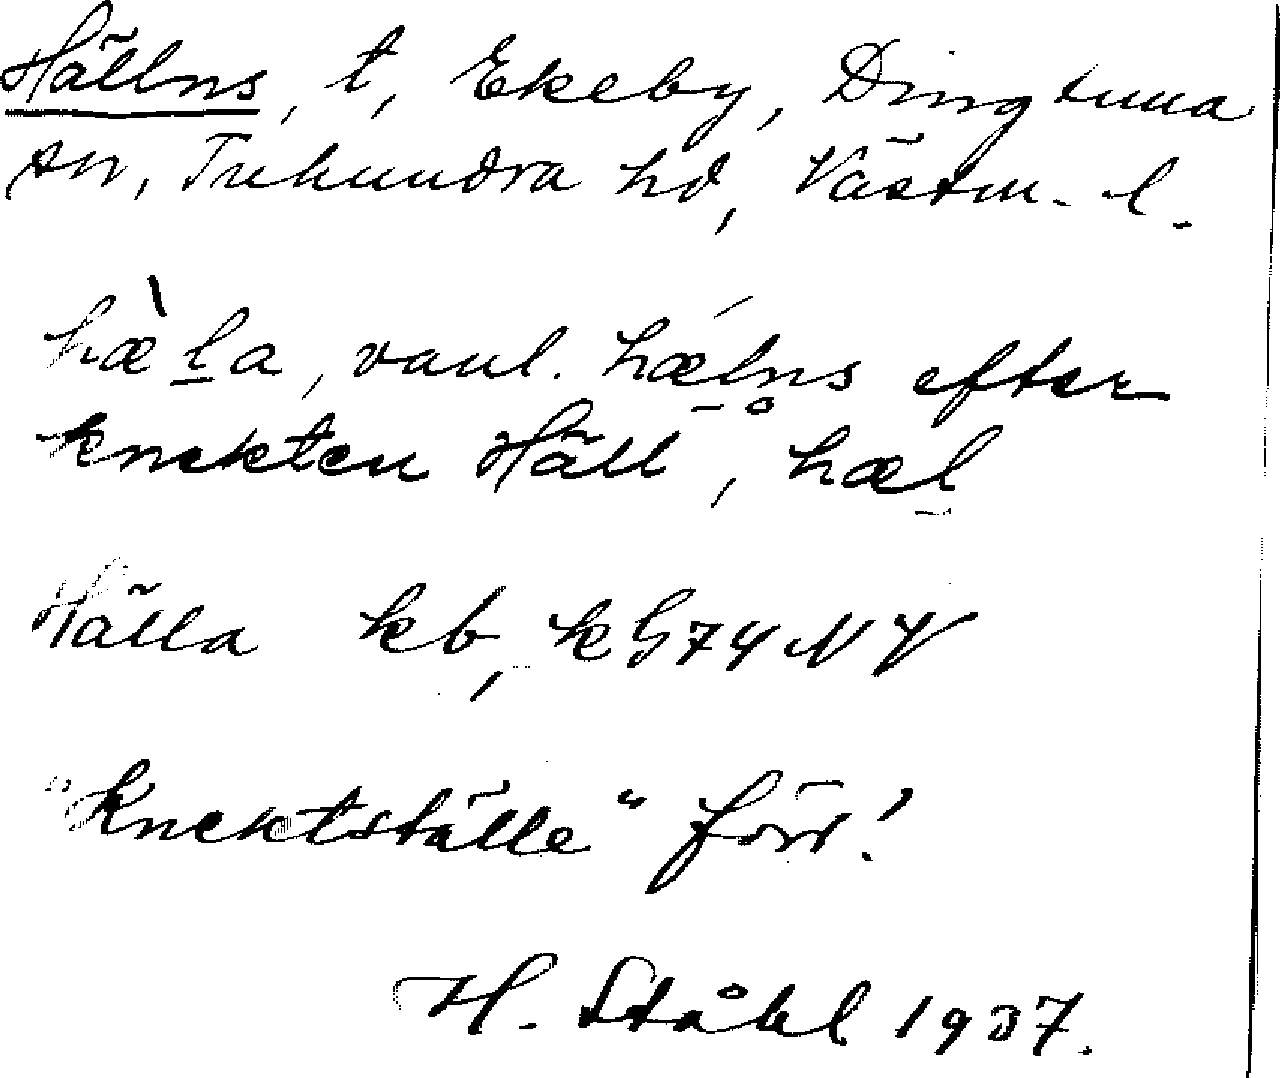 Hällns, t, Ekeby, Dingtuna
sn, Tuhundra hd, Västm. l.
hæ̀l̠a, vanl. hǽl̠n̥s efter
knekten Häll, hæl̠
Hälla kb, kG74NV
"knektställe" förr!
H. Ståhl 1937.